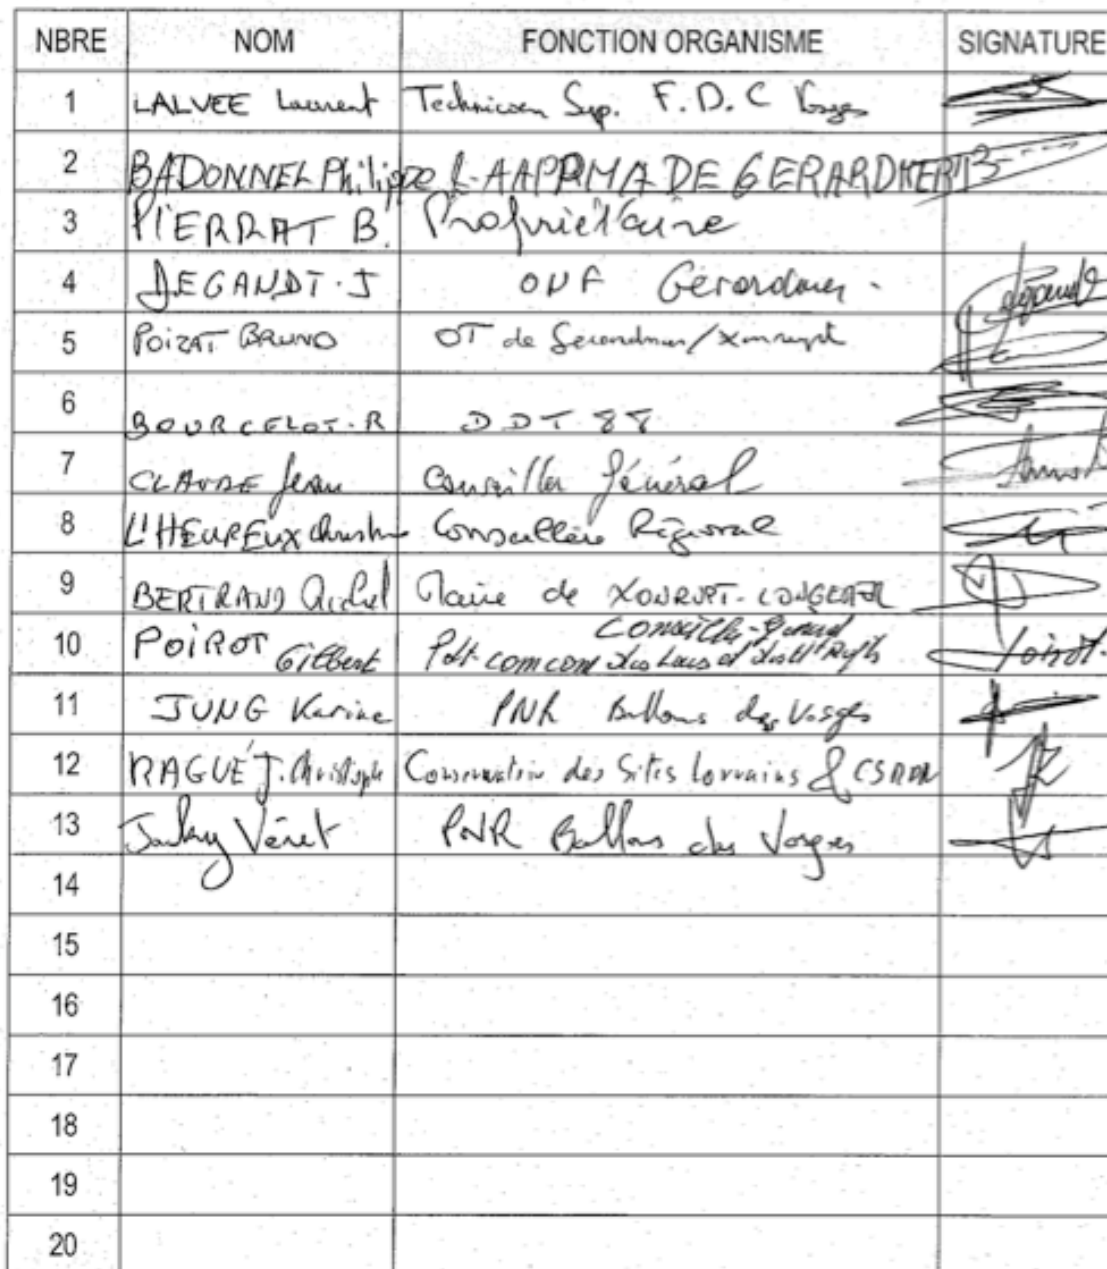 NBRE NOM FONCTION ORGANISME SIGNATURE
1 LALVEE Laurent Technicien Sup. F.D.C Vosges
2 BADONNEL Philippe AAPPMA DE GERARDMER
3 PIERRAT B. Propriétaire
4 DEGANDT.J ONF Gérardmer.
5 POIZAT BRUNO OT de Gerardmer/Xonrupt
6 BOURCELOT.R DDT 88
7 CLAUDE Jean Conseiller Général
8 L'HEUREUX Christine Conseillère Régional
9 BERTRAND Michel Maire de XONRUPT-LONGEMER
Conseiller-Général
10 POIROT Gilbert Pdt comcom des Lacs et des Hts Rupts Poirot
11 JUNG Karine PNR Ballons des Vosges
12 RAGUÉ J.Christophe Conservatoire des Sites Lorrains & CSRPN
13 Vénet PNR Ballons des Vosges
14
15
16
17
18
19
20